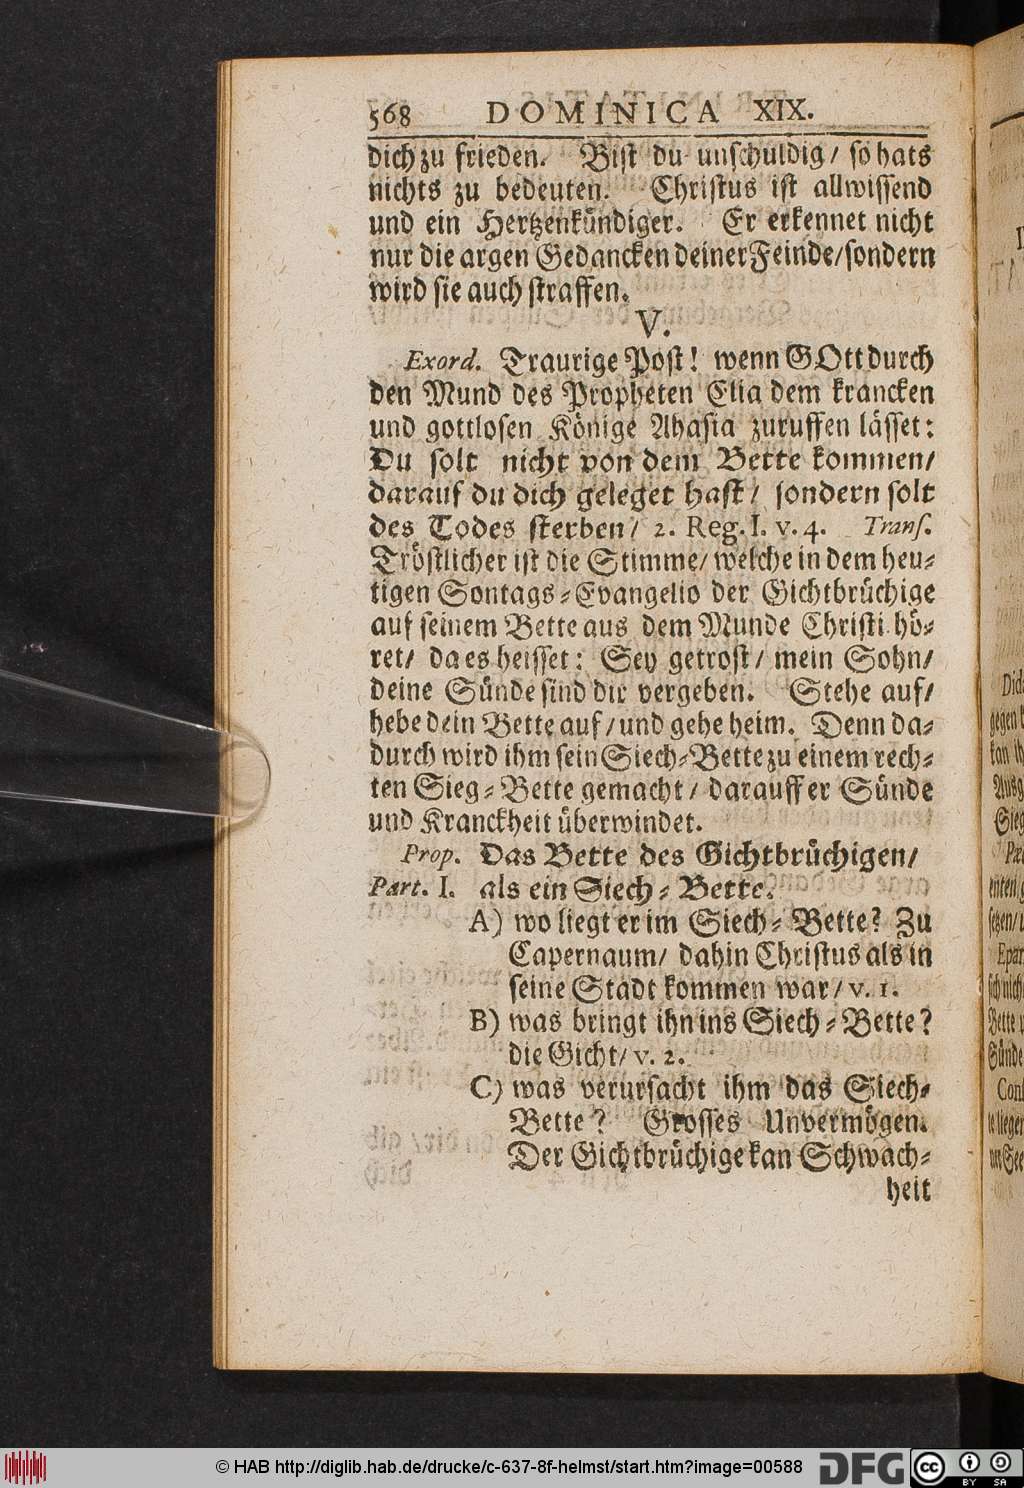 568 DOMINICA XIX.
dich zu frieden. Bist du unschuldig/ so hats
nichts zu bedeuten. Christus ist allwissend
und ein Hertzenkündiger. Er erkennet nicht
nur die argen Gedancken deiner Feinde/sondern
wird sie auch straffen.
V.
Exord. Traurige Post! wenn GOtt durch
den Mund des Propheten Elia dem krancken
und gottlosen Könige Ahasia zuruffen lässet:
Du solt nicht von dem Bette kommen/
darauf du dich geleget hast/ sondern solt
des Todes sterben/ 2. Reg. I. v. 4. Trans.
Tröstlicher ist die Stimme/ welche in dem heu-
tigen Sontags-Evangelio der Gichtbrüchige
auf seinem Bette aus dem Munde Christi hö-
ret/ da es heisset: Sey getrost/ mein Sohn/
deine Sünde sind dir vergeben. Stehe auf/
hebe dein Bette auf/und gehe heim. Denn da-
durch wird ihm sein Siech-Bette zu einem rech-
ten Sieg-Bette gemacht/ darauff er Sünde
und Kranckheit überwindet.
Prop. Das Bette des Gichtbrüchigen/
Part. I. als ein Siech-Bette.
A) wo liegt er im Siech-Bette? Zu
Capernaum/ dahin Christus als in
seine Stadt kommen war/ v. 1.
B) was bringt ihn ins Siech-Bette?
die Gicht/ v. 2.
C) was verursacht ihm das Siech-
Bette? Grosses Unvermögen.
Der Gichtbrüchige kan Schwach-
heit
© HAB http://diglib.hab.de/drucke/c-637-8f-helmst/start.htm?image=00588
DFG
cc BY SA